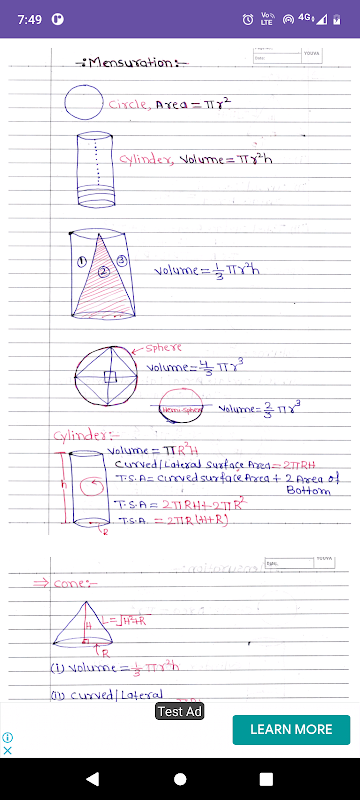 7:49
Vo))
LTE
4G
YOUVA
Date:
-:Mensuration:-
Circle, Area = πr²
Cylinder, Volume = πr²h
① ② ③
Volume = 1/3 πr²h
Sphere
Volume = 4/3 πr³
Hemi-Sphere
Volume = 2/3 πr³
Cylinder:-
Volume = πR²H
Curved/Lateral Surface Area = 2πRH
T.S.A = Curved surface Area + 2 Area of
Bottom
h
T.S.A = 2πRH+2πR²
T.S.A. = 2πR(H+R)
R
YOUVA
Date:
⇒ Cone:-
H
L=√H²+R
R
(i) Volume = 1/3 πr²h
(ii) Curved/Lateral
Test Ad
LEARN MORE